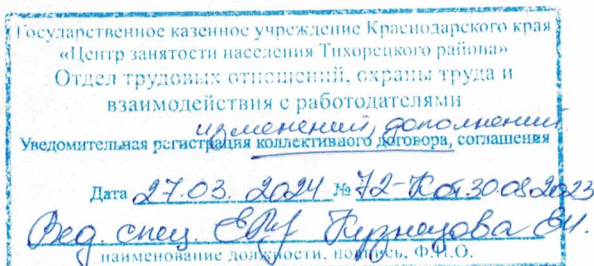 Государственное казенное учреждение Краснодарского края
«Центр занятости населения Тихорецкого района»
Отдел трудовых отношений, охраны труда и
взаимодействия с работодателями
изменений, дополнений
Уведомительная регистрация коллективного договора, соглашения
Дата 27.03. 2024 № 72-К от 30.08.2023
Вед. спец. Кузнецова
наименование должности, подпись, Ф.И.О.